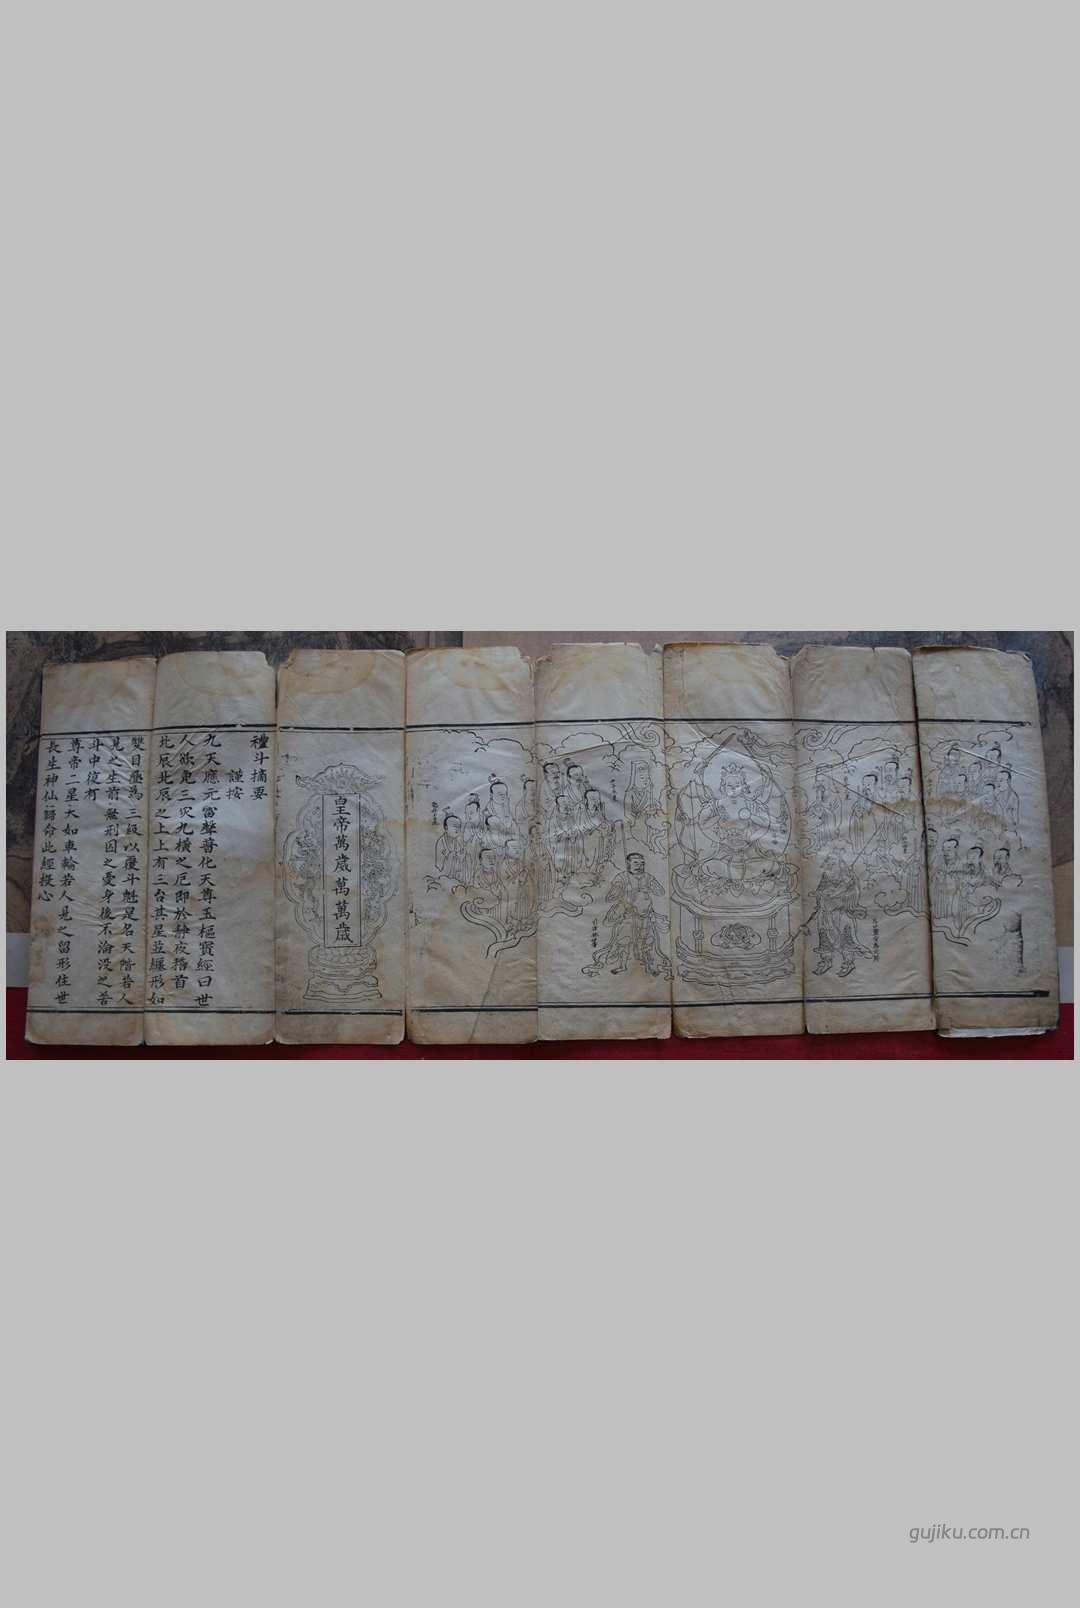 禮斗摘要
謹按
九天應元雷聲普化天尊玉樞寶經曰世
人欲免三災九橫之厄即於靜夜稽首
北辰北辰之上上有三台其星並躔形如
雙目疊為三級以覆斗魁是名天階若人
見之生前無刑囚之憂身後不淪沒之苦
斗中復有
尊帝二星大如車輪若人見之留形住世
長生神仙歸命此經投心
皇帝萬歲萬萬歲
gujiku.com.cn